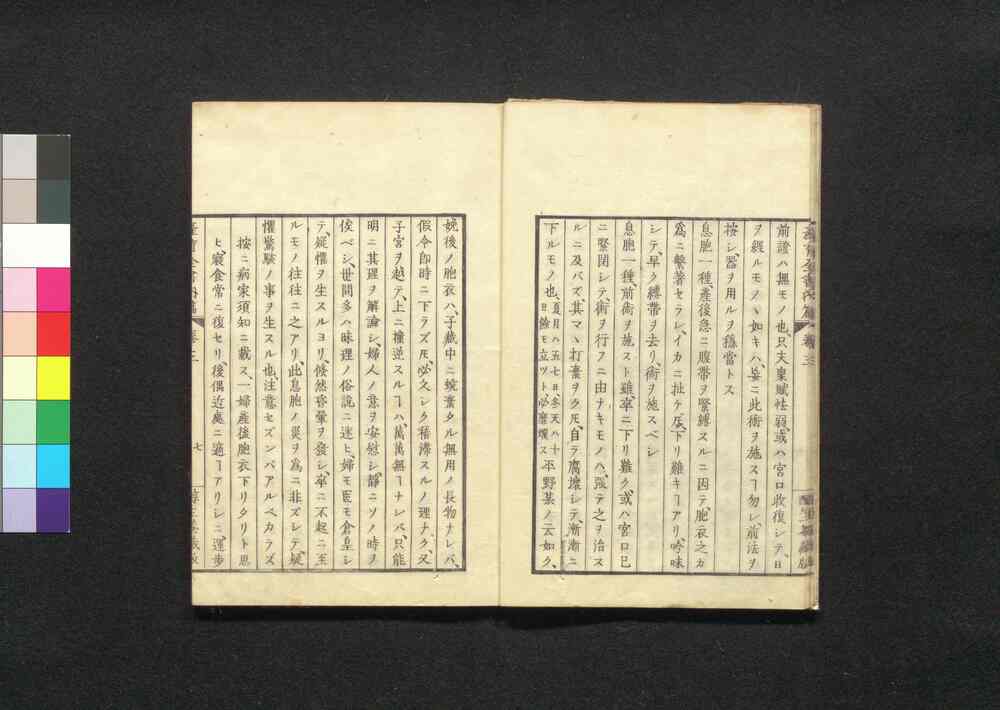 産育全書内篇 卷三
前證ハ無モノ也、只夫稟賦怯弱、或ハ宮口收復シテ、日
ヲ經ルモノヽ如キハ、妄ニ此術ヲ施スヿ勿レ、前法ヲ
按シ、器ヲ用ルヲ穏當トス
息胞一種、產後急ニ腹帶ヲ緊縛スルニ因テ、胞衣之カ
爲ニ繫著セラレ、イカニ扯ケ𪜈、下リ難キヿアリ、吟味
シテ、早ク纏帶ヲ去リ、術ヲ施スベシ
息胞一種、前術ヲ施スト雖、卒ニ下リ難ク、或ハ宮口已
ニ緊閉シテ、術ヲ行フニ由ナキモノハ、强テ之ヲ治ス
ルニ及バズ、其マヽ打棄ヲク𪜈、自ラ腐壞シテ、漸漸ニ
下ルモノ也、夏月ハ五七日、冬天ハ十日餘モ立ツト必腐爛ス 平野某ノ云如ク、
娩後ノ胞衣ハ、子藏中ニ蛻棄タル無用ノ長物ナレバ、
假令即時ニ下ラズ𪜈、必久シク稽滯スルノ理ナク、又
子宮ヲ越テ、上ニ撞逆スルヿハ、萬萬無ヿナレバ、只能
明ニ其理ヲ解諭シ、婦人ノ意ヲ安慰シ、靜ニソノ時ヲ
俟ベシ、世間多ハ昧理ノ俗說ニ迷ヒ、婦モ医モ倉皇シ
テ、疑懼ヲ生スルヨリ、倐然昏暈ヲ發シ、卒ニ不起ニ至
ルモノ往往ニ之アリ、此息胞ノ災ヲ為ニ非ズシテ、疑
懼驚駭ノ事ヲ生スル也、注意セズンバアルベカラズ
按ニ病家須知ニ載ス、一婦產後胞衣下リタリト思
ヒ、寢食常ニ復セリ、後偶近處ニ適ヿアリシニ、運步
七